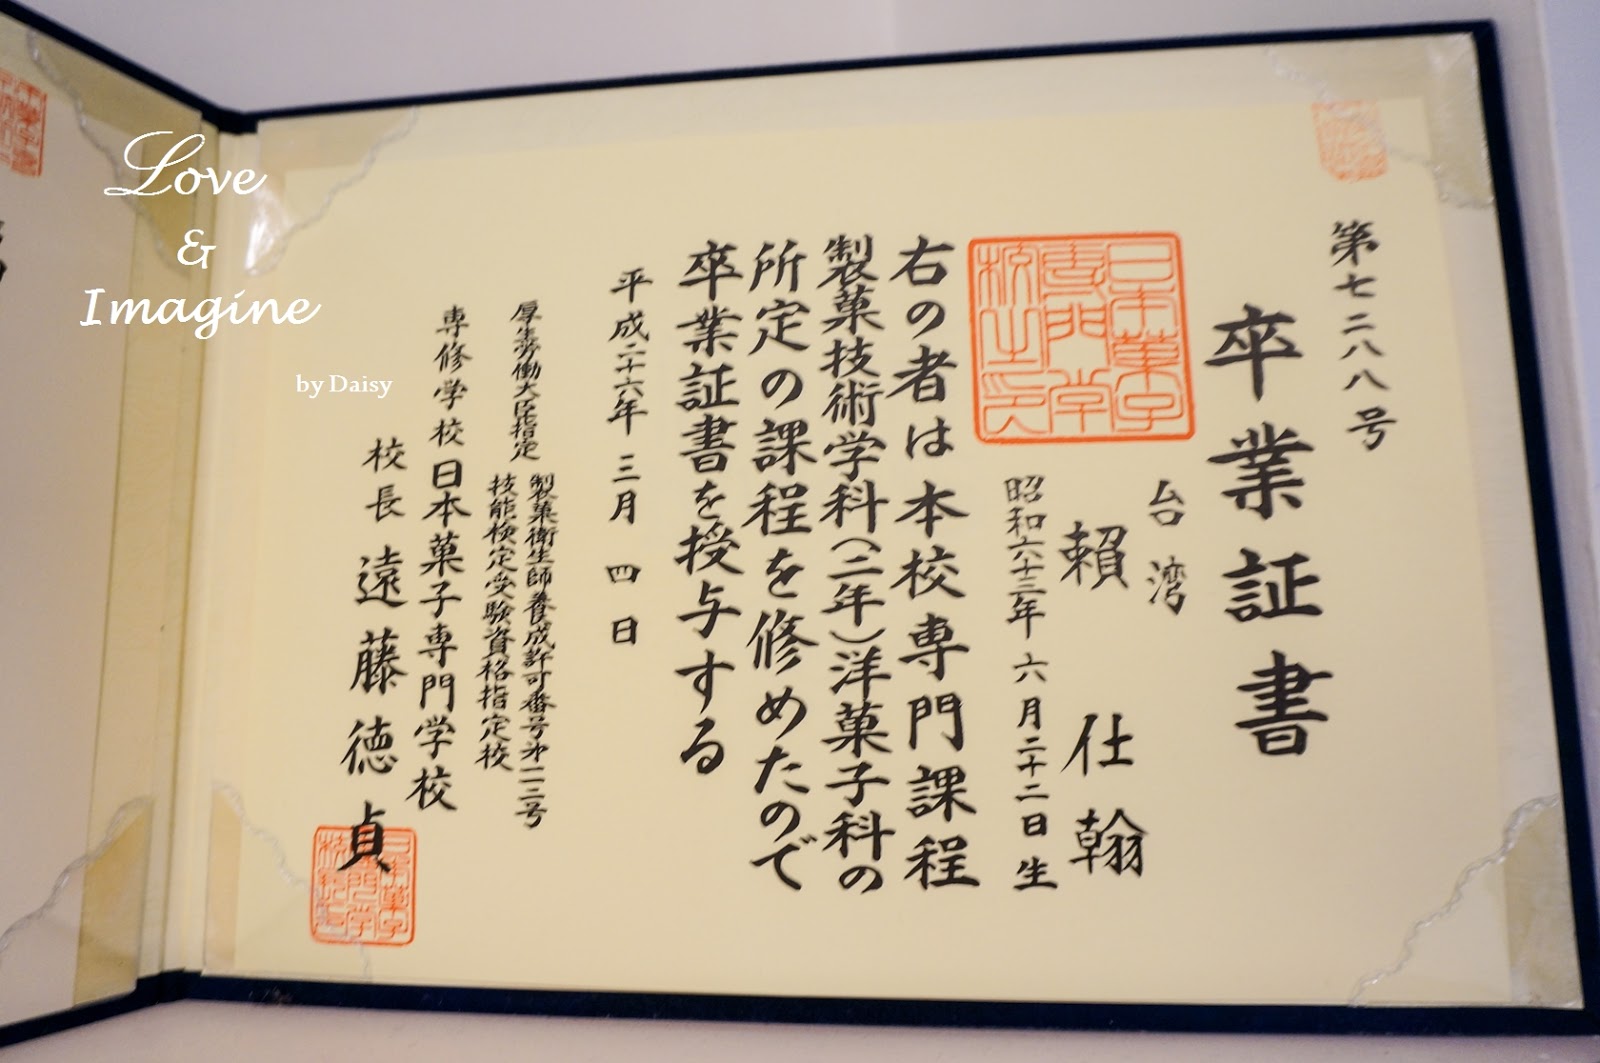 第七二八八号
卒業証書
台湾
賴仕翰
昭和六十三年六月二十二日生
日本菓子
専門学
校之印
右の者は本校専門課程
製菓技術学科(二年)洋菓子科の
所定の課程を修めたので
卒業証書を授与する
平成二十六年三月四日
厚生労働大臣指定
製菓衛生師養成許可番号第一二三号
技能検定受験資格指定校
専修学校日本菓子専門学校
校長遠藤徳貞
Love
&
Imagine
by Daisy